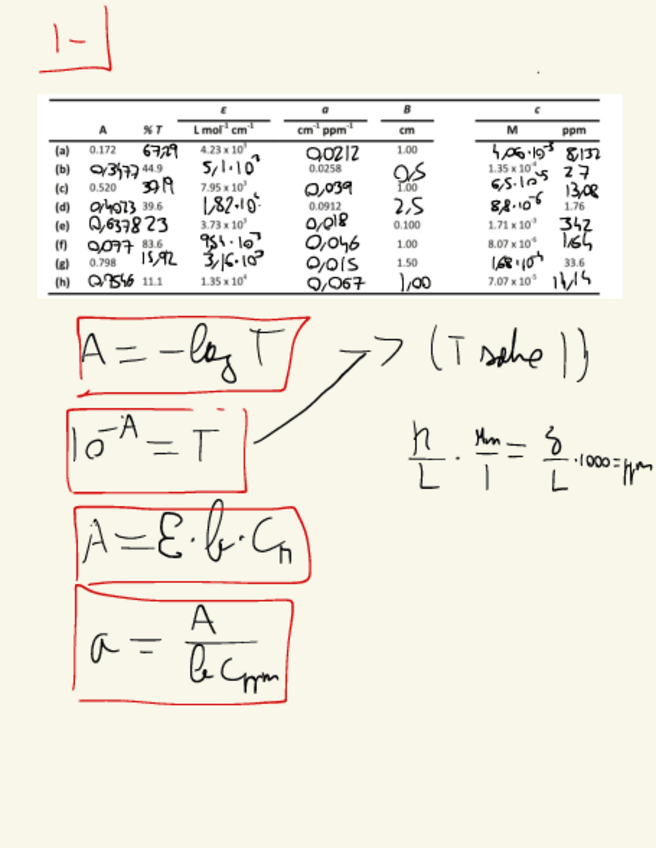 1-
ε a B c
A %T L mol⁻¹ cm⁻¹ cm⁻¹ ppm⁻¹ cm M ppm
(a) 0.172 67,29 4.23 x 10³ 0,0212 1.00 4,06·10⁻⁵ 8,132
(b) 0,3477 44.9 5,1·10³ 0.0258 0,5 1.35 x 10⁻⁴ 27
(c) 0.520 7.95 x 10³ 0,039 1.00 6,5·10⁻⁵ 13,08
(d) 0,4023 39.6 1,82·10⁴ 0.0912 2,5 8,8·10⁻⁶ 1.76
(e) 0,6378 23 3.73 x 10³ 0,018 0.100 1.71 x 10⁻³ 342
(f) 0,077 83.6 0,046 1.00 8.07 x 10⁻⁶ 1,64
(g) 0.798 15,92 3,16·10³ 0,015 1.50 1,68·10⁻⁴ 33.6
(h) 11.1 1.35 x 10⁴ 0,067 1,00 7.07 x 10⁻⁵ 14,14
A = -log T
10⁻ᴬ = T (T sobre 1)
n/L · Mm/1 = g/L ·1000 = ppm
A = ε·b·Cn
a = A/(b Cppm)